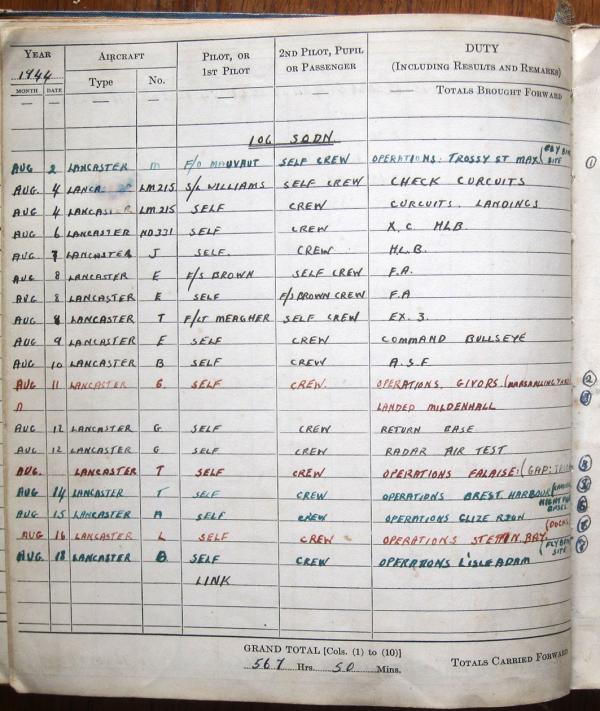 YEAR AIRCRAFT PILOT, OR 1ST PILOT 2ND PILOT, PUPIL OR PASSENGER DUTY (INCLUDING RESULTS AND REMARKS)
1944
MONTH DATE Type No. TOTALS BROUGHT FORWARD
— — — — — — —
106 SQDN
AUG 2 LANCASTER M F/O MAUVAUT SELF CREW OPERATIONS: TROSSY ST MAX (FLY BOMB SITE 1
AUG. 4 LANCA LM215 S/L WILLIAMS SELF CREW CHECK CURCUITS
AUG 4 LANCAS R LM215 SELF CREW CURCUITS. LANDINGS
AUG 6 LANCASTER ND331 SELF CREW X.C. H.L.B.
AUG 7 LANCASTER J SELF. CREW H.L.B.
AUG 8 LANCASTER E F/S BROWN SELF CREW F.A.
AUG 8 LANCASTER E SELF F/S BROWN CREW F.A
AUG 8 LANCASTER T F/LT MEAGHER SELF CREW EX. 3.
AUG 9 LANCASTER E SELF CREW COMMAND BULLSEYE
AUG 10 LANCASTER B SELF CREW A.S.F
AUG 11 LANCASTER G. SELF CREW. OPERATIONS. GIVORS. (MARSHALLING YARD 2
LANDED MILDENHALL 3
AUG 12 LANCASTER G SELF CREW RETURN BASE
AUG 12 LANCASTER G SELF CREW RADAR AIR TEST
AUG. LANCASTER T SELF CREW OPERATIONS FALAISE: (GAP:
AUG 14 LANCASTER T SELF CREW OPERATIONS BREST HARBOUR
AUG 15 LANCASTER A SELF CREW OPERATIONS GLIZE RIJN
AUG 16 LANCASTER L SELF CREW OPERATIONS STETTIN BAY. (DOCKS
AUG. 18 LANCASTER B SELF CREW OPERATIONS L'ISLE ADAM (FLY BOMB SITE
LINK
GRAND TOTAL [Cols. (1) to (10)]
567 Hrs. 50 Mins. TOTALS CARRIED FORWARD